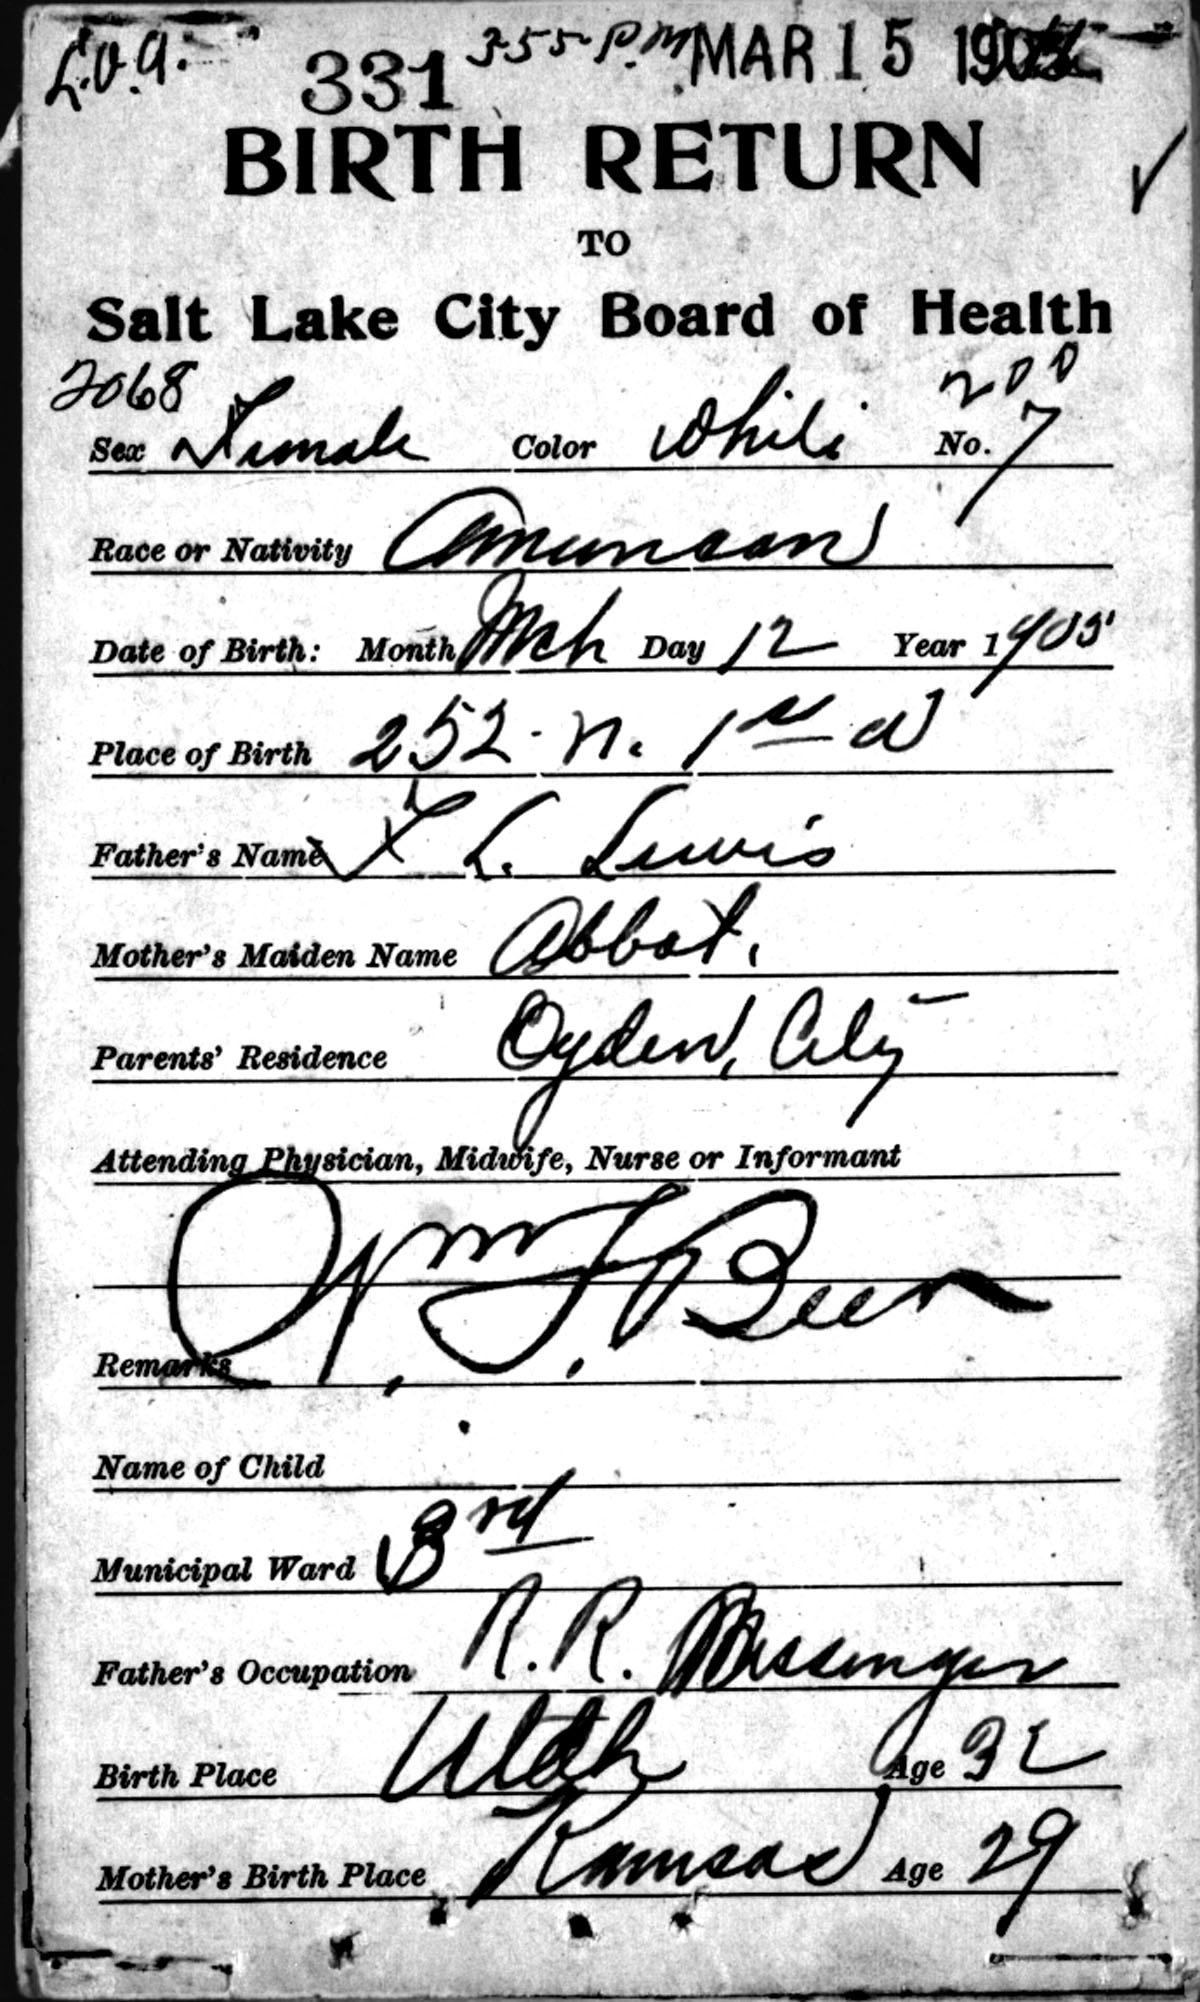 L.V.A. 331 355 P.M MAR 15 190
BIRTH RETURN
TO
Salt Lake City Board of Health
2068 200
Sex Female Color White No. 7
Race or Nativity American
Date of Birth: Month Mch Day 12 Year 1905
Place of Birth 252 - N. 1st W
Father's Name L. Lewis
Mother's Maiden Name Abbot.
Parents' Residence Ogden, City
Attending Physician, Midwife, Nurse or Informant
Wm. F. Beer
Remarks
Name of Child
Municipal Ward 3rd
Father's Occupation R.R. Messenger
Birth Place Utah Age 32
Mother's Birth Place Kansas Age 29